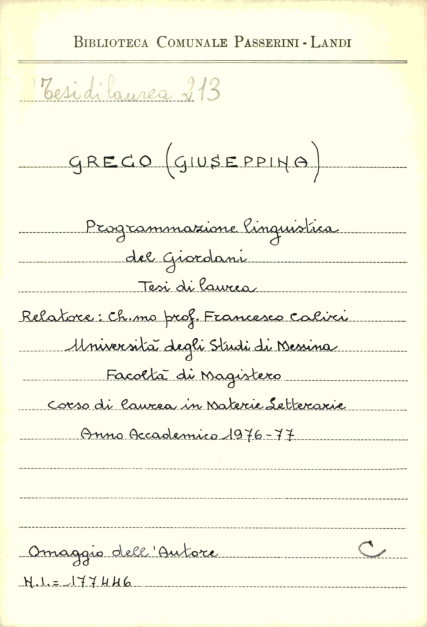 BIBLIOTECA COMUNALE PASSERINI - LANDI
Tesi di laurea 213
GRECO (GIUSEPPINA)
Programmazione linguistica
del Giordani
Tesi di laurea
Relatore: Ch.mo prof. Francesco Caliri
Università degli Studi di Messina
Facoltà di Magistero
Corso di laurea in Materie Letterarie
Anno Accademico 1976-77
Omaggio dell'Autore C
N.I.= 177446